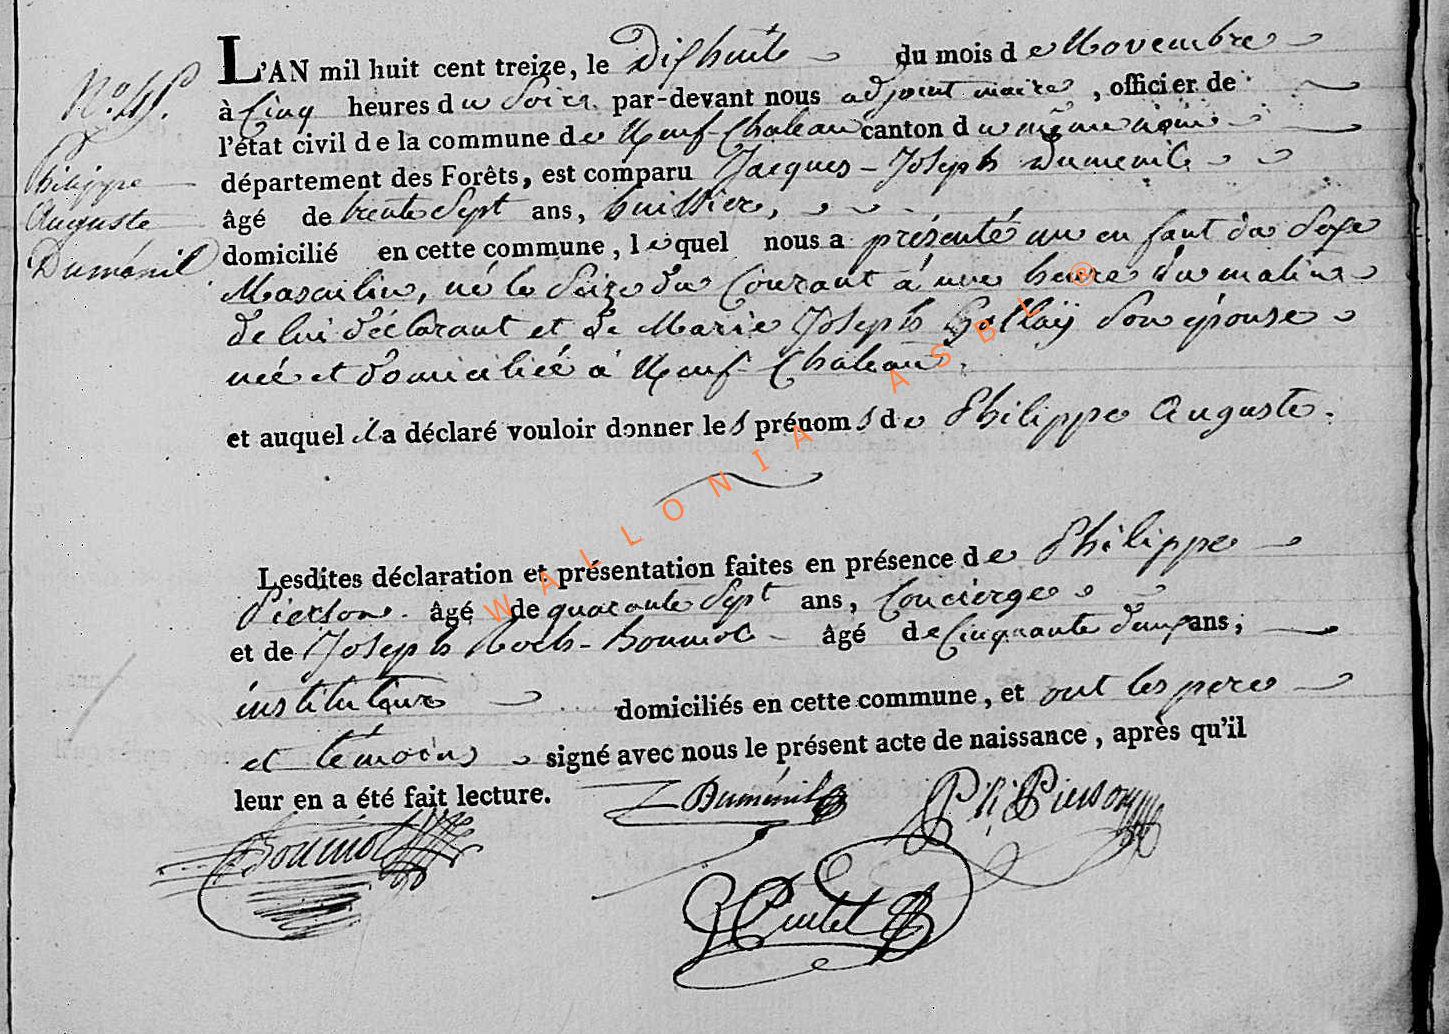 L'AN mil huit cent treize, le Dixhuit du mois de Novembre
à Cinq heures du Soir par-devant nous adjoint maire, officier de
l'état civil de la commune de Neuf-Chateau canton du même nom
département des Forêts, est comparu Jacques-Joseph Dumenil
âgé de trente Sept ans, huissier,
domicilié en cette commune, lequel nous a présenté un enfant du Sexe
Masculin, né le Seize du Courant à une heure du matin
de lui déclarant et de Marie Joseph son épouse
née et domiciliée à Neuf-Chateau
et auquel il a déclaré vouloir donner les prénoms de Philippe Auguste.
Philippe
Auguste
Duménil
Lesdites déclaration et présentation faites en présence de Philippe
Pierson âgé de quarante Sept ans, Concierge
et de Joseph Roch-Boumot âgé de Cinquante deux ans;
instituteur domiciliés en cette commune, et ont les pere
et témoins signé avec nous le présent acte de naissance, après qu'il
leur en a été fait lecture.
Duménil
Ph Pierson
Boumot
WALLONIA ASBL ®